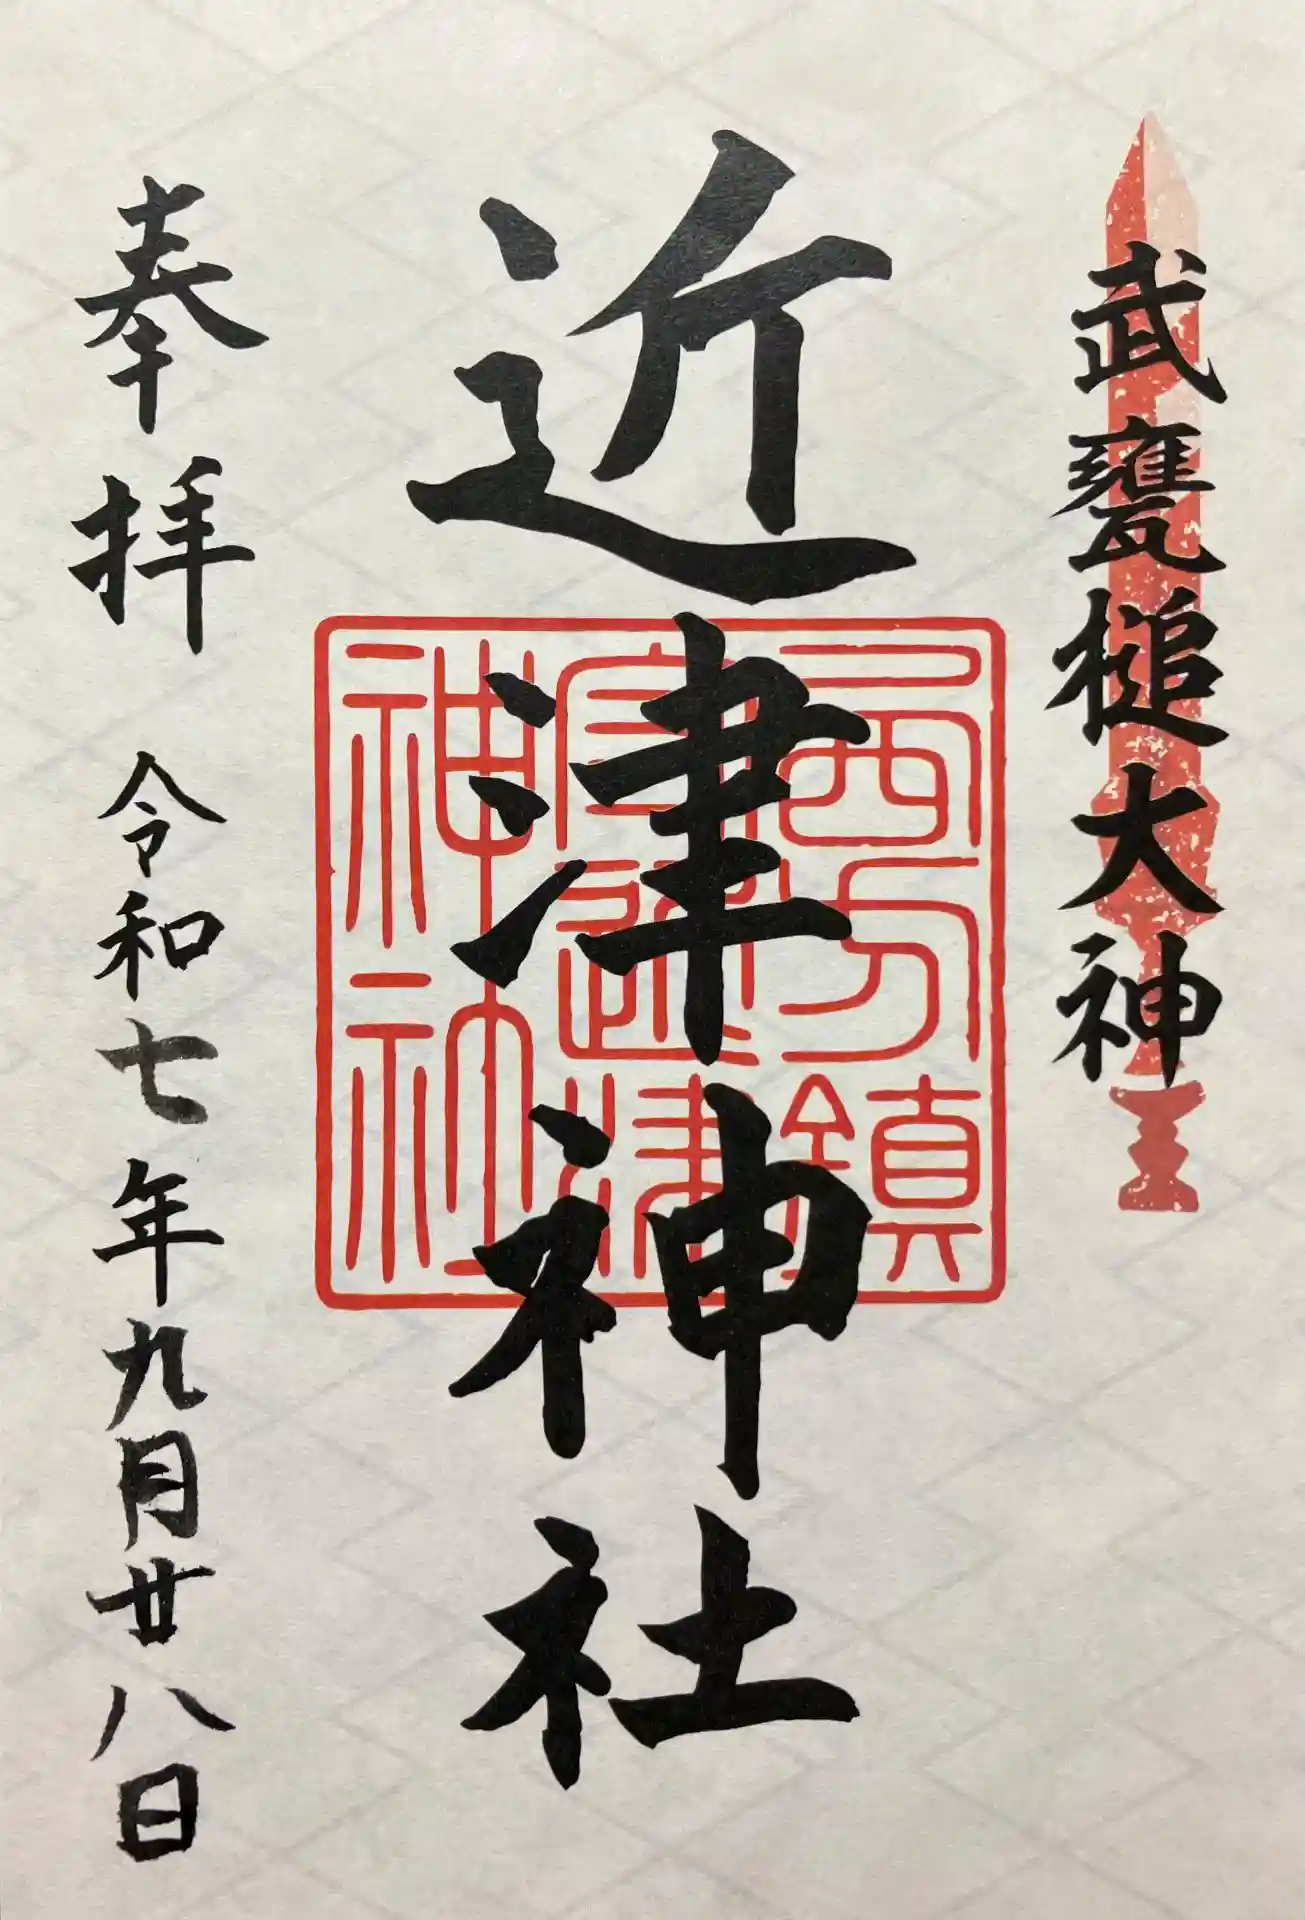 武甕槌大神
近津神社
西方鎮
宮近津
神社
奉拝 令和七年九月廿八日